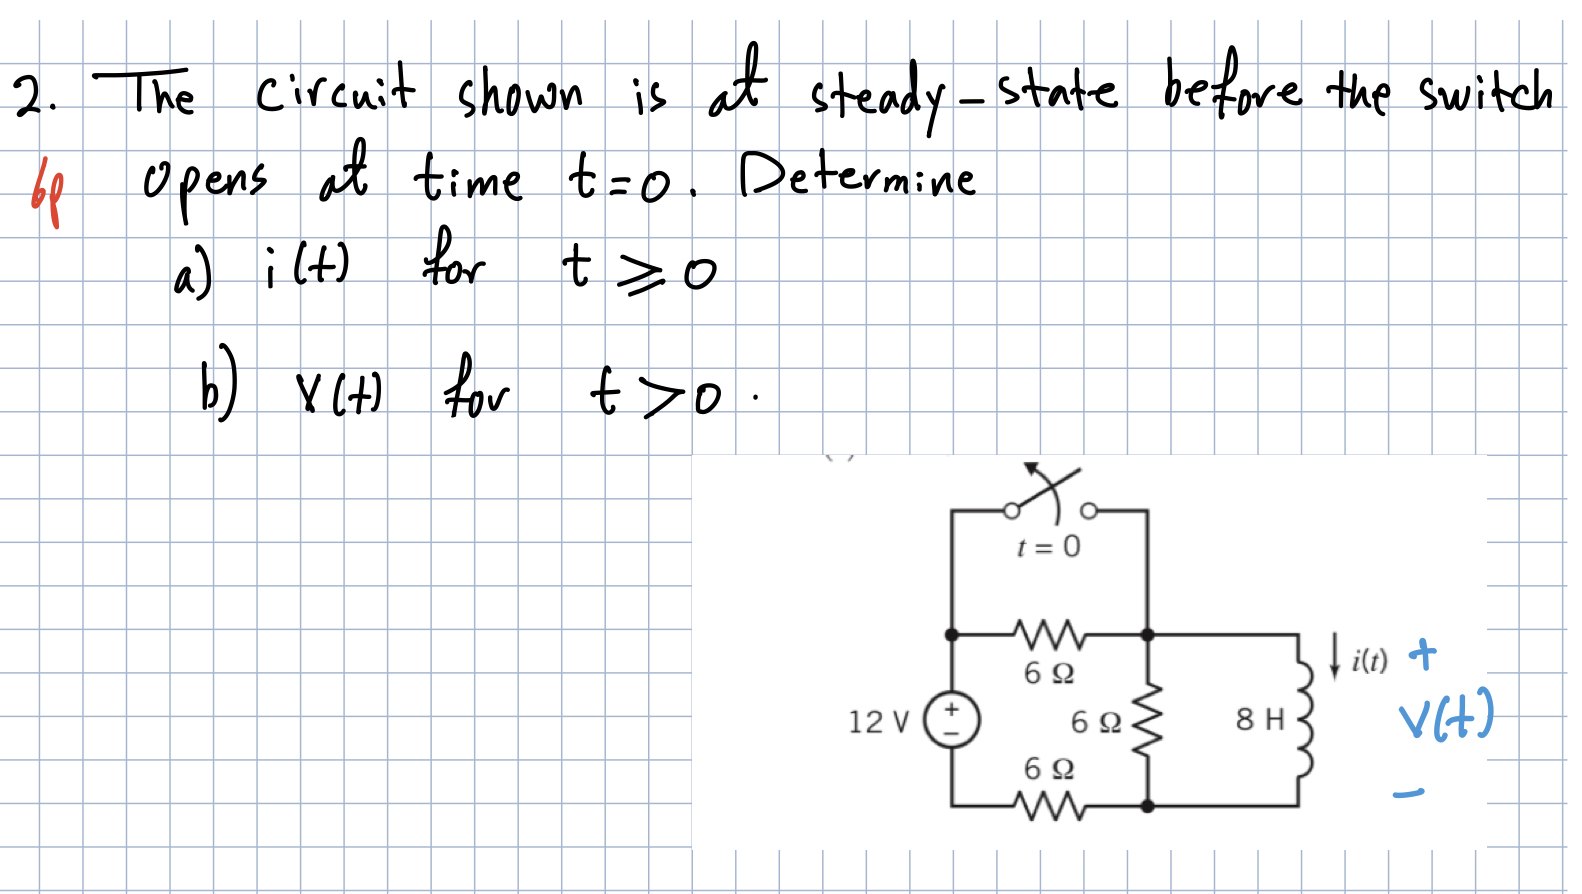 2. The circuit shown is at steady-state before the switch
6p opens at time t=0. Determine
a) i(t) for t ⩾ 0
b) v(t) for t > 0.
t = 0
6 Ω
i(t) +
12 V + − 6 Ω 8 H v(t)
6 Ω
−